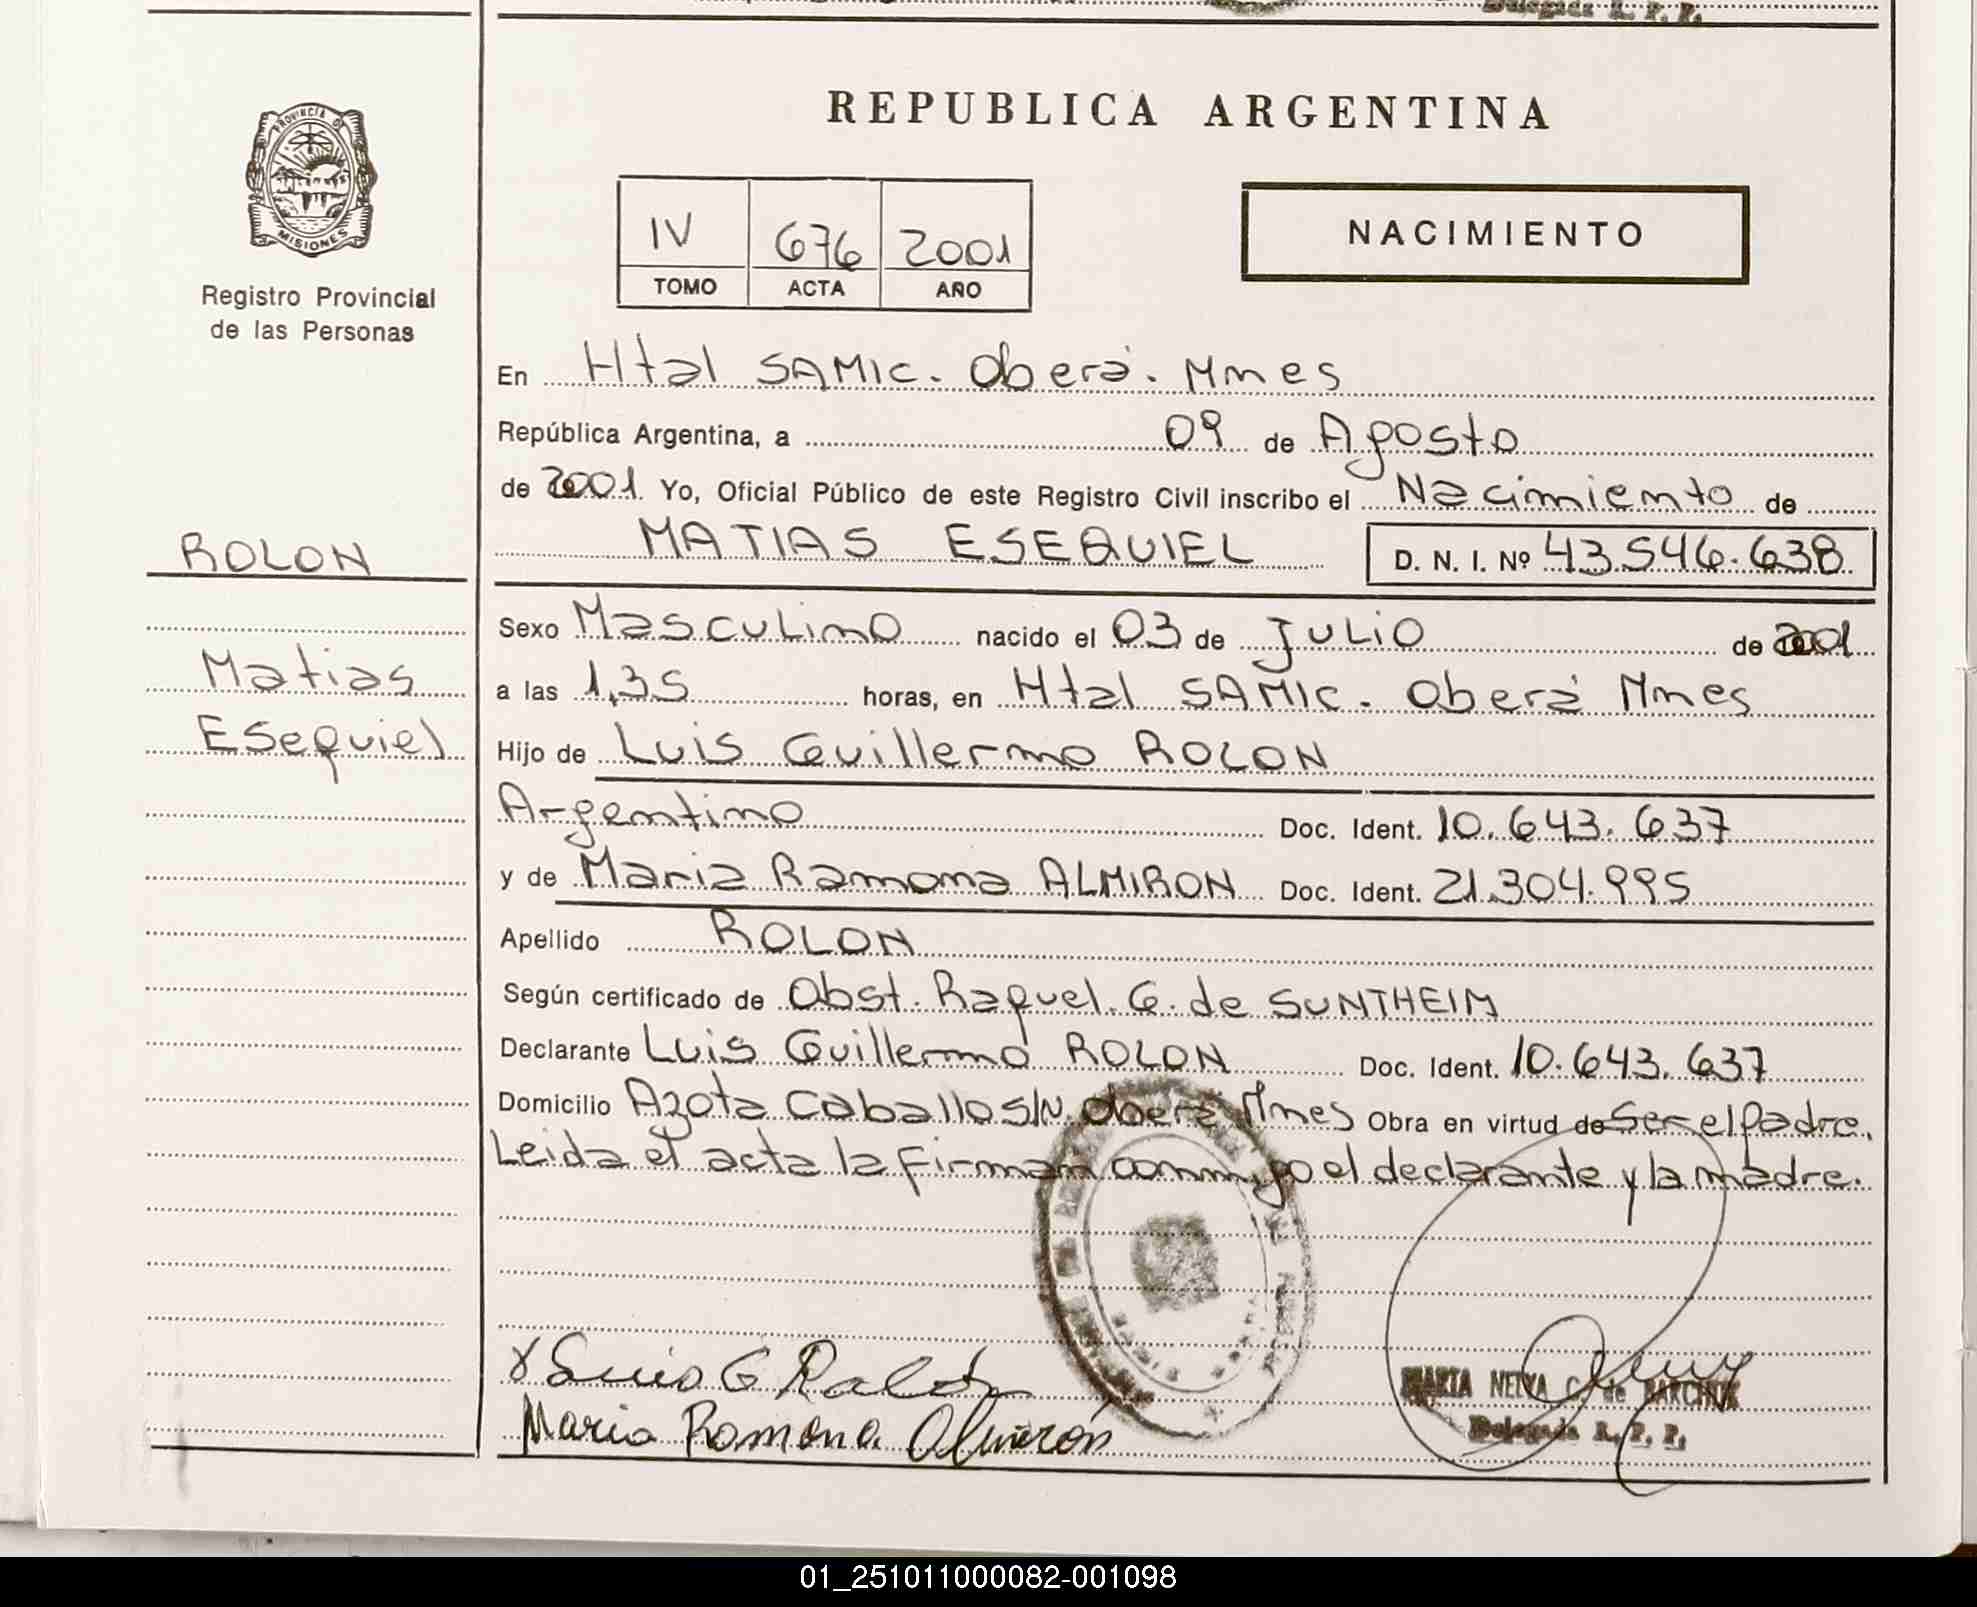 Delegada R. P. P.
REPUBLICA ARGENTINA
PROVINCIA DE
MISIONES
Registro Provincial
de las Personas
IV 676 2001
TOMO ACTA AÑO
NACIMIENTO
En Htal SAMIC. Oberá. Mnes
República Argentina, a 09 de Agosto
de 2001. Yo, Oficial Público de este Registro Civil inscribo el Nacimiento de
ROLON
MATIAS ESEQUIEL D. N. I. Nº 43.546.638
Matias
Esequiel
Sexo Masculino nacido el 03 de Julio de 2001
a las 1,35 horas, en Htal SAMIC. Oberá Mnes
Hijo de Luis Guillermo ROLON
Argentino Doc. Ident. 10.643.637
y de Maria Ramona ALMIRON Doc. Ident. 21.304.995
Apellido ROLON
Según certificado de Obst. Raquel. G. de SUNTHEIM
Declarante Luis Guillermo ROLON Doc. Ident. 10.643.637
Domicilio Azota Caballo S/N. Oberá Mnes Obra en virtud de Ser el Padre.
Leida el acta la firman conmigo el declarante y la madre.
x Luis G Rolón
Maria Ramona Almirón
MARTA NELVA C. de BARCHUK
Delegada R. P. P.
01_251011000082-001098